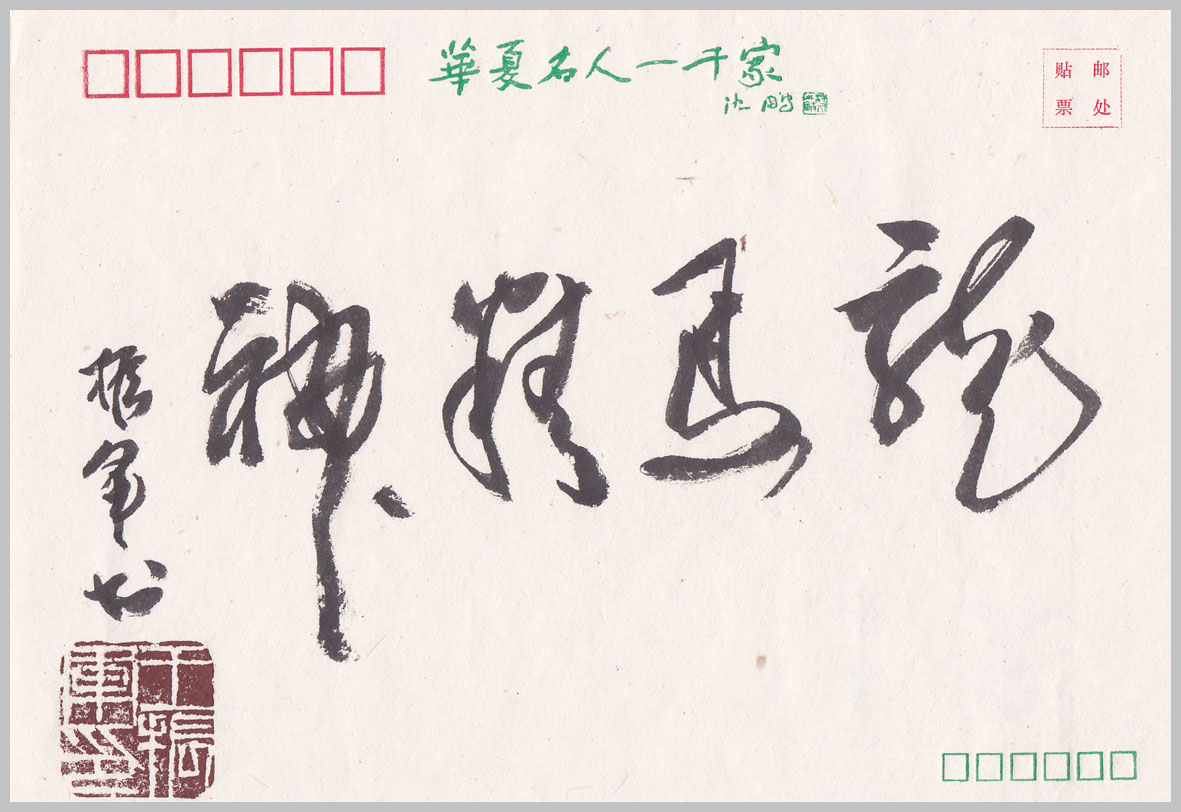 華夏名人一千家
沈鹏
贴邮
票处
龍馬精神
振军书